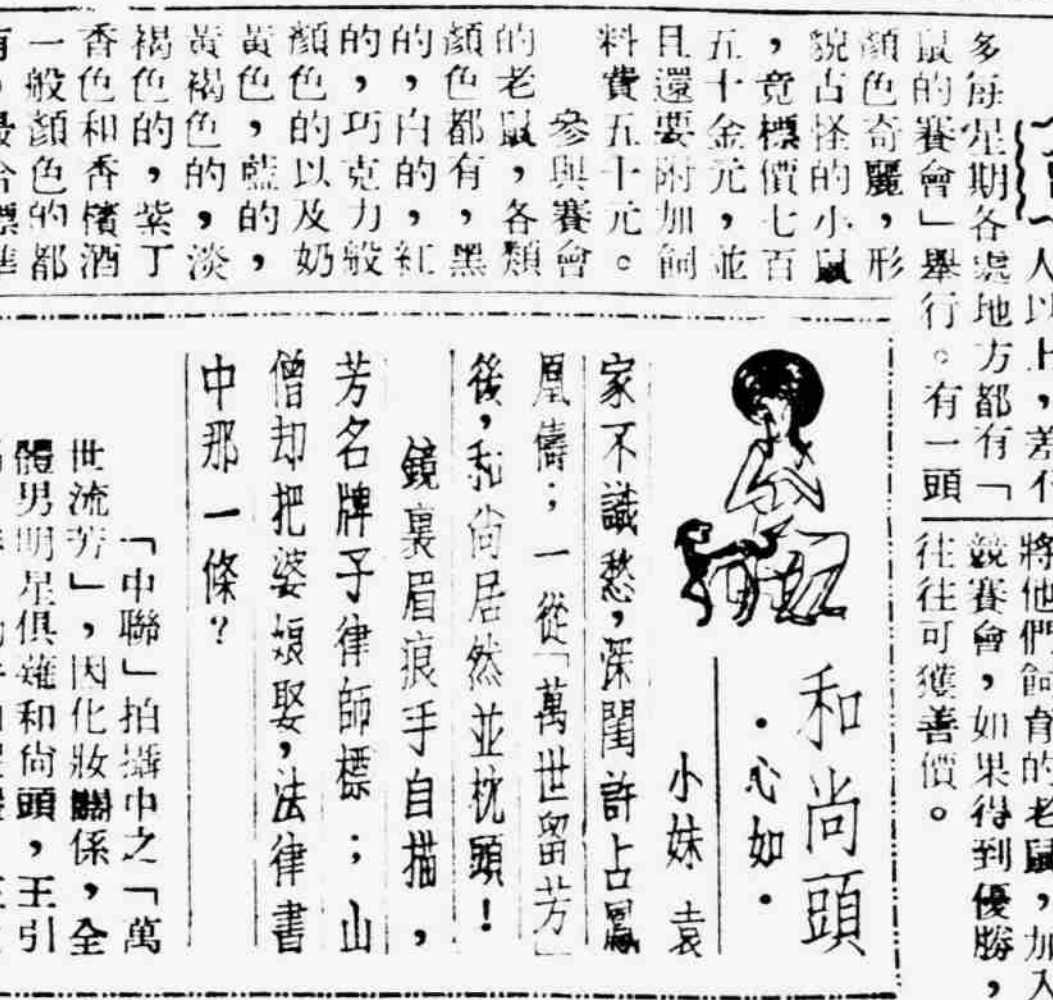 人以上，差不
多每星期各處地方都有「
鼠的賽會」舉行。有一頭
顏色奇麗，形
貌古怪的小鼠
，竟標價七百
五十金元，並
且還要附加飼
料費五十元。
參與賽會
的老鼠，各類
顏色都有，黑
的，白的，紅
的，巧克力般
顏色的以及奶
黃色，藍的，
黃褐色的，淡
褐色的，紫丁
香色和香檳酒
一般顏色的都
有。最合標準
將他們飼育的老鼠，加入
競賽會，如果得到優勝，
往往可獲善價。
和尚頭
·心如·
小妹袁
家不識愁，深閨許占鳳
凰儔；一從「萬世留芳」
後，和尚居然並枕頭！
鏡裏眉痕手自描，
芳名牌子律師標；山
僧却把婆娘娶，法律書
中那一條？
「中聯」拍攝中之「萬
世流芳」，因化妝關係，全
體男明星俱薙和尚頭，王引